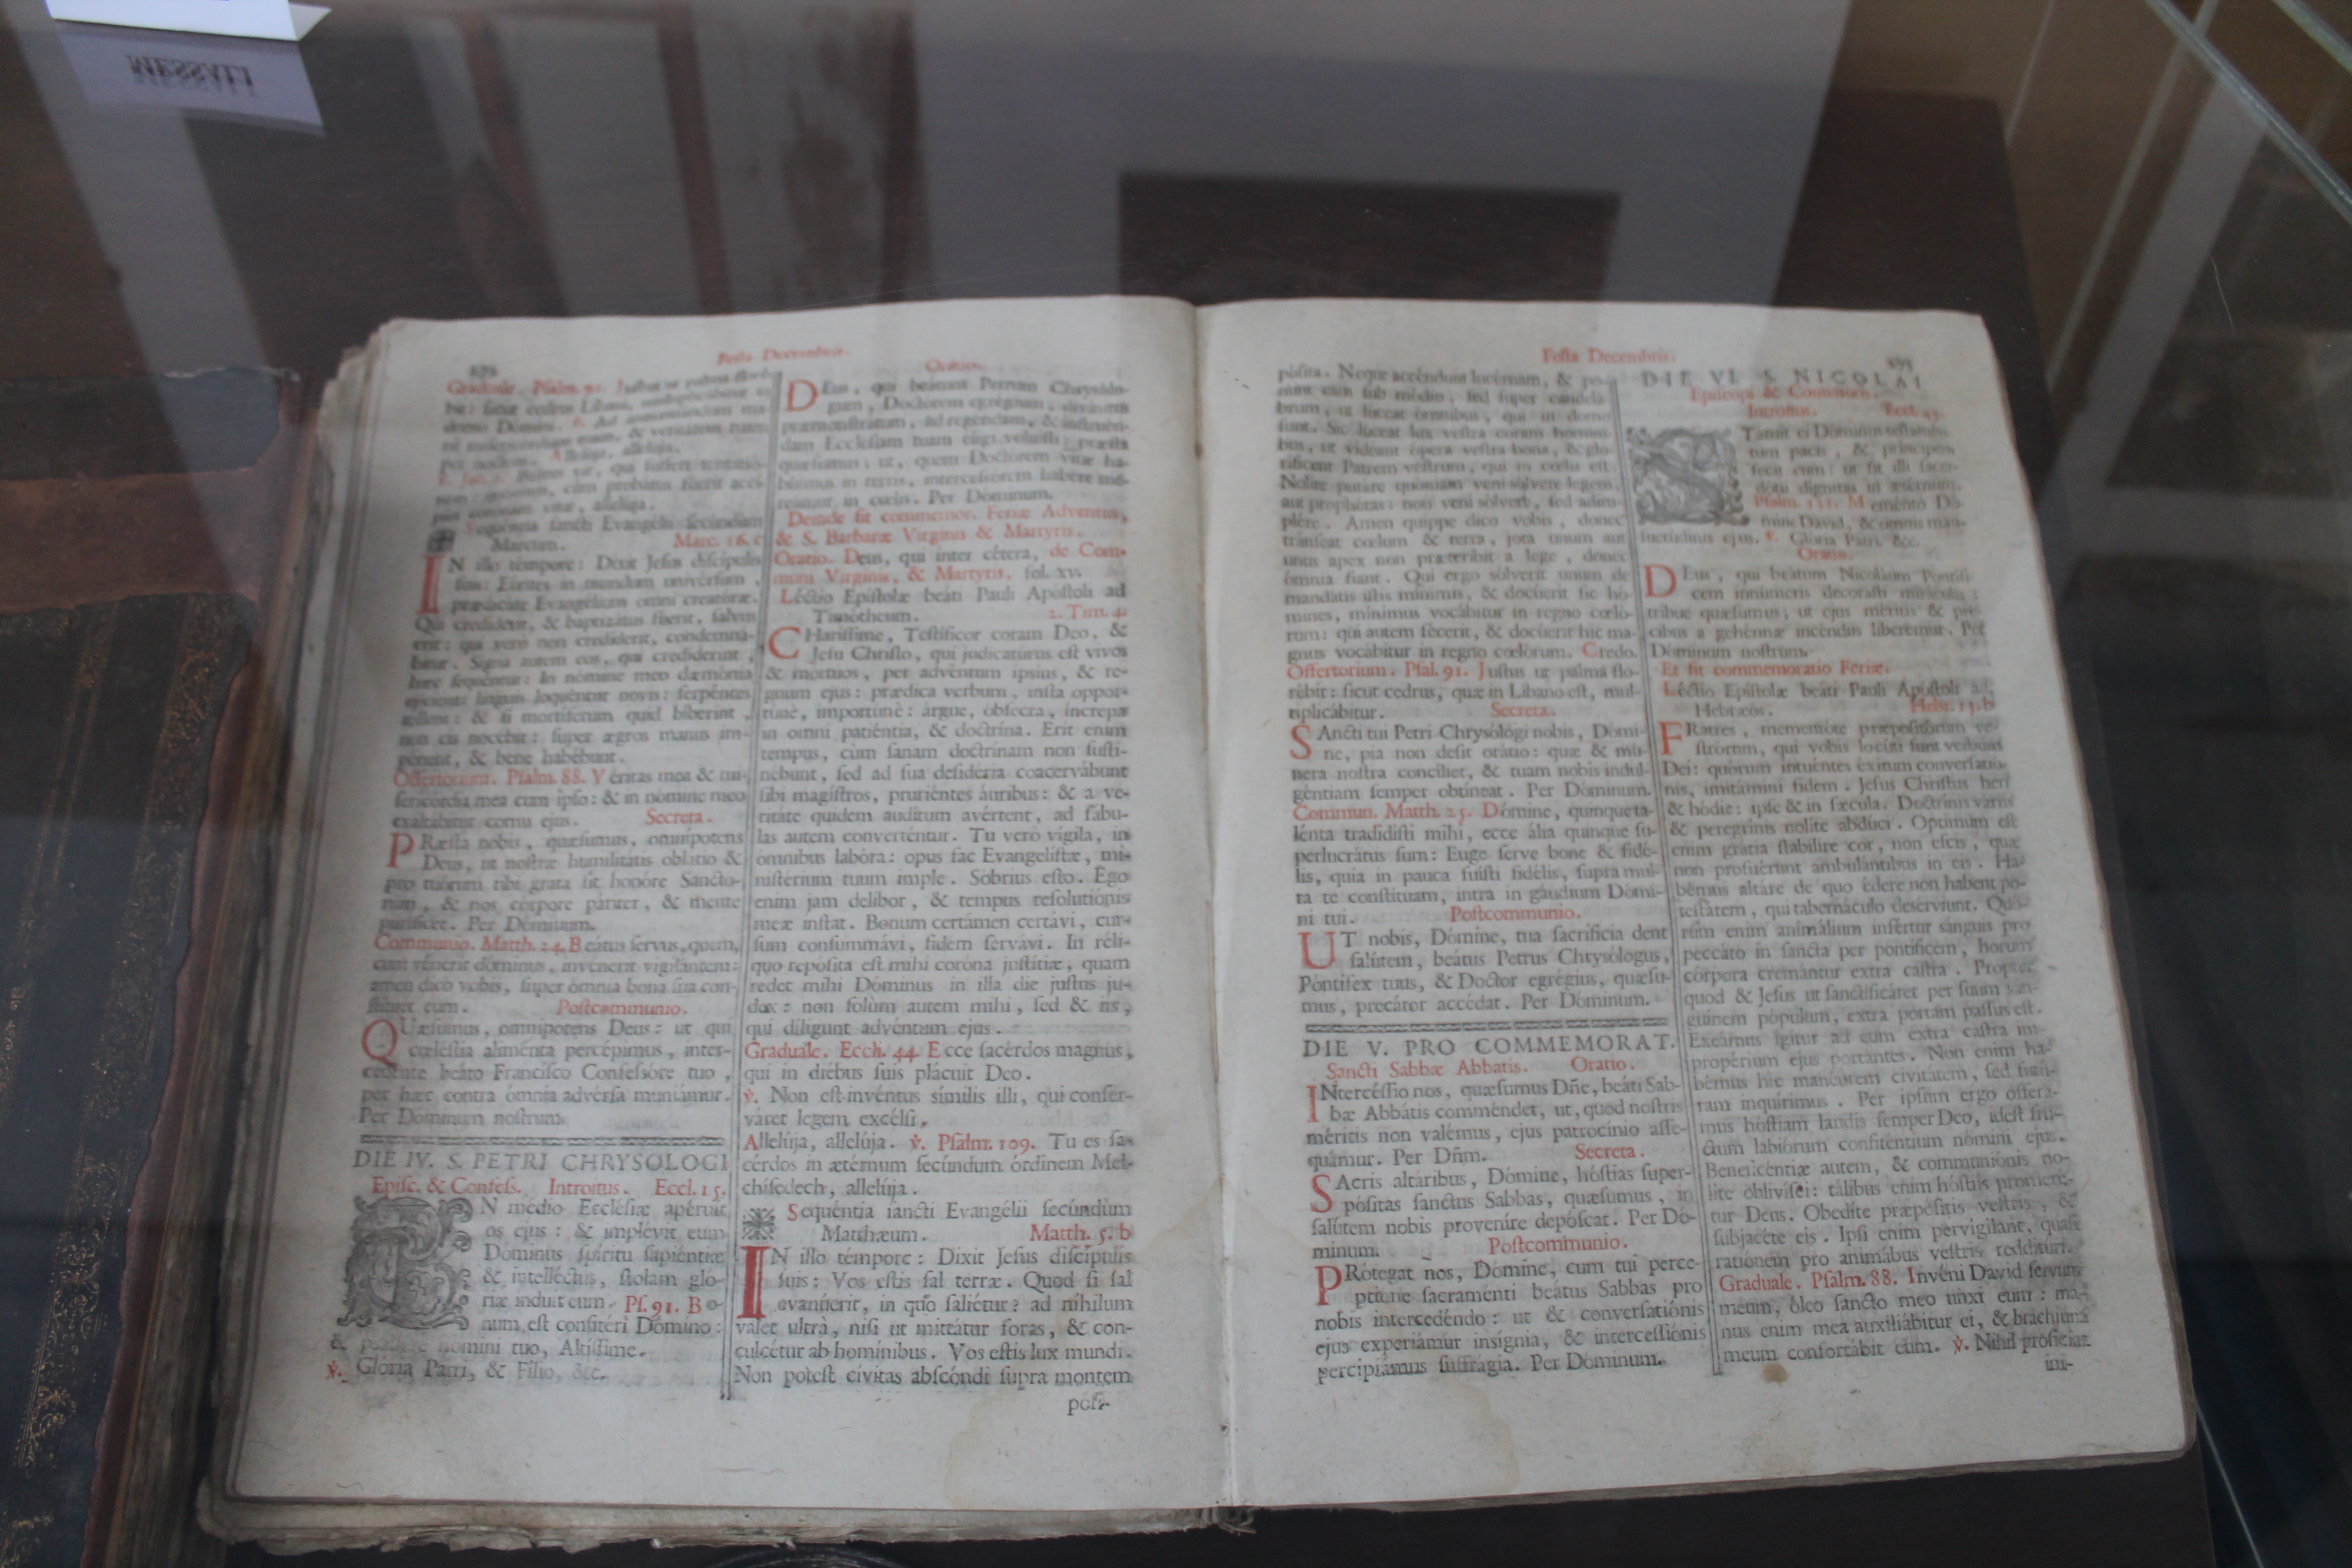 MESSALI
Festa Decembris.
Graduale. Psalm. 91. Justus ut palma
Sequentia sancti Evangelii secundum
Marcum. Marc. 16. c
IN illo témpore: Dixit Jesus discípulis
suis: Eúntes in mundum univérsum,
prædicáte Evangélium omni creatúræ.
Qui credíderit, & baptizátus fúerit, salvus
erit: qui vero non credíderit, condemná-
bitur. Signa autem eos, qui credíderint,
hæc sequéntur: In nómine meo dæmónia
ejícient: linguis loquéntur novis: serpéntes
tollent: & si mortíferum quid bíberint,
non eis nocébit: super ægros manus im-
pónent, & bene habébunt.
Offertorium. Psalm. 88. Véritas mea & mi-
sericórdia mea cum ipso: & in nómine meo
exaltábitur cornu ejus. Secreta.
PRæsta nobis, quæsumus, omnípotens
Deus, ut nostræ humilitátis oblátio &
pro tuórum tibi grata sit honóre Sanctó-
rum, & nos córpore páriter, & mente
puríficet. Per Dóminum.
Communio. Matth. 24. Beátus servus, quem,
cum vénerit dóminus, invénerit vigilántem:
amen dico vobis, super ómnia bona sua con-
stítuet eum. Postcommunio.
QUæsumus, omnípotens Deus: ut qui
cœléstia aliménta percépimus, inter-
cedénte beáto Francísco Confessóre tuo,
per hæc contra ómnia advérsa muniámur.
Per Dóminum nostrum.
DIE IV. S. PETRI CHRYSOLOGI
Episc. & Confess. Introitus. Eccl. 15.
IN médio Ecclésiæ apéruit
os ejus: & implévit eum
Dóminus spíritu sapiéntiæ
& intelléctus, stolam gló-
riæ índuit eum. Ps. 91. Bo-
num est confitéri Dómino:
& nómini tuo, Altíssime.
℣. Glória Patri, & Fílio, &c.
Oratio.
DEus, qui beátum Petrum Chrysólo-
gum, Doctórem egrégium, divínitus
præmonstrátum, ad regéndam, & instruén-
dam Ecclésiam tuam éligi voluísti: præsta
quæsumus: ut, quem Doctórem vitæ ha-
búimus in terris, intercessórem habére me-
reámur in cœlis. Per Dóminum.
Deinde fit commemor. Feriæ Adventus,
& S. Barbaræ Virginis & Martyris.
Oratio. Deus, qui inter cétera, de Com-
muni Virginis, & Martyris. fol. xv.
Léctio Epístolæ beáti Pauli Apóstoli ad
Timótheum. 2. Tim. 4.
CHaríssime, Testíficor coram Deo, &
Jesu Christo, qui judicatúrus est vivos
& mórtuos, per advéntum ipsíus, & re-
gnum ejus: prædica verbum, insta oppor-
túnè, importúnè: árgue, óbsecra, íncrepa
in omni patiéntia, & doctrína. Erit enim
tempus, cùm sanam doctrínam non susti-
nébunt, sed ad sua desidéria coacervábunt
sibi magístros, pruriéntes áuribus: & a ve-
ritáte quidem audítum avértent, ad fábu-
las autem converténtur. Tu verò vígila, in
ómnibus labóra: opus fac Evangelístæ, mi-
nistérium tuum imple. Sóbrius esto. Ego
enim jam delíbor, & tempus resolutiónis
meæ instat. Bonum certámen certávi, cur-
sum consummávi, fidem servávi. In réli-
quo repósita est mihi coróna justítiæ, quam
reddet mihi Dóminus in illa die justus ju-
dex: non solùm autem mihi, sed & iis,
qui díligunt advéntum ejus.
Graduale. Eccli. 44. Ecce sacérdos magnus,
qui in diébus suis plácuit Deo.
℣. Non est invéntus símilis illi, qui conser-
váret legem excélsi.
Allelúja, allelúja. ℣. Psalm. 109. Tu es sa-
cérdos in ætérnum secúndum órdinem Mel-
chísedech, allelúja.
Sequéntia sancti Evangélii secúndùm
Matthæum. Matth. 5. b
IN illo témpore: Dixit Jesus discípulis
suis: Vos estis sal terræ. Quod si sal
evanúerit, in quo saliétur? ad níhilum
valet ultrà, nisi ut mittátur foras, & con-
culcétur ab homínibus. Vos estis lux mundi.
Non potest cívitas abscóndi supra montem
pósi-
Festa Decembris.
pósita. Neque accéndunt lucérnam, & po-
nunt eam sub módio, sed super candelá-
brum, ut lúceat ómnibus, qui in domo
sunt. Sic lúceat lux vestra coram homíni-
bus, ut vídeant ópera vestra bona, & glo-
ríficent Patrem vestrum, qui in cœlis est.
Nolíte putáre quóniam veni sólvere legem,
aut prophétas: non veni sólvere, sed adim-
plére. Amen quippe dico vobis, donec
tránseat cœlum & terra, jota unum aut
unus apex non præteríbit a lege, donec
ómnia fiant. Qui ergo sólverit unum de
mandátis istis mínimis, & docúerit sic hó-
mines, mínimus vocábitur in regno cœló-
rum: qui autem fécerit, & docúerit hic ma-
gnus vocábitur in regno cœlórum. Credo.
Offertorium. Psal. 91. Justus ut palma flo-
rébit: sicut cedrus, quæ in Líbano est, mul-
tiplicábitur. Secreta.
SAncti tui Petri Chrysólogi nobis, Dómi-
ne, pia non desit orátio: quæ & mú-
nera nostra concíliet, & tuam nobis indul-
géntiam semper obtíneat. Per Dóminum.
Commun. Matth. 25. Dómine, quinque ta-
lénta tradidísti mihi, ecce ália quinque su-
perlucrátus sum: Euge serve bone & fidé-
lis, quia in pauca fuísti fidélis, supra mul-
ta te constítuam, intra in gáudium Dómi-
ni tui. Postcommunio.
UT nobis, Dómine, tua sacrifícia dent
salútem, beátus Petrus Chrysólogus,
Póntifex tuus, & Doctor egrégius, quæsu-
mus, precátor accédat. Per Dóminum.
DIE V. PRO COMMEMORAT.
Sancti Sabbæ Abbatis. Oratio.
INtercéssio nos, quæsumus Dñe, beáti Sab-
bæ Abbátis comméndet, ut, quod nostris
méritis non valémus, ejus patrocínio asse-
quámur. Per Dñm. Secreta.
SAcris altáribus, Dómine, hóstias super-
pósitas sanctus Sabbas, quæsumus, in
salútem nobis proveníre depóscat. Per Dó-
minum. Postcommunio.
PRótegat nos, Dómine, cum tui perce-
ptióne sacraménti beátus Sabbas pro
nobis intercedéndo: ut & conversatiónis
ejus experiámur insígnia, & intercessiónis
percipiámus suffrágia. Per Dóminum.
DIE VI. S. NICOLAI
Episcopi & Confessoris.
Introitus. Eccl. 45.
STatuit ei Dóminus testamén-
tum pacis, & príncipem
fecit eum: ut sit illi sacer-
dótii dígnitas in ætérnum.
Psalm. 131. Meménto Dó-
mine David, & omnis man-
suetúdinis ejus. ℣. Glória Patri. &c.
Oratio.
DEus, qui beátum Nicoláum Pontífi-
cem innúmeris decorásti miráculis:
tríbue quæsumus; ut ejus méritis & pré-
cibus a gehénnæ incéndiis liberémur. Per
Dóminum nostrum.
Et fit commemoratio Feriæ.
Léctio Epístolæ beáti Pauli Apóstoli ad
Hebræos. Hebr. 13. b
FRatres, mementóte præpositórum ve-
strórum, qui vobis locúti sunt verbum
Dei: quorum intuéntes éxitum conversatió-
nis, imitámini fidem. Jesus Christus heri
& hódie: ipse & in sæcula. Doctrínis váriis
& peregrínis nolíte abdúci. Optimum est
enim grátia stabilíre cor, non escis, quæ
non profuérunt ambulántibus in eis. Ha-
bémus altáre de quo édere non habent po-
testátem, qui tabernáculo desérviunt. Quo-
rum enim animálium infértur sánguis pro
peccáto in sancta per pontíficem, horum
córpora cremántur extra castra. Propter
quod & Jesus ut sanctificáret per suum sán-
guinem pópulum, extra portam passus est.
Exeámus ígitur ad eum extra castra im-
propérium ejus portántes. Non enim ha-
bémus hic manéntem civitátem, sed futú-
ram inquírimus. Per ipsum ergo offerá-
mus hóstiam laudis semper Deo, idest fru-
ctum labiórum confiténtium nómini ejus.
Beneficéntiæ autem, & communiónis no-
líte oblivísci: tálibus enim hóstiis promeré-
tur Deus. Obedíte præpósitis vestris, &
subjacéte eis. Ipsi enim pervígilant, quasi
ratiónem pro animábus vestris redditúri.
Graduale. Psalm. 88. Invéni David servum
meum, óleo sancto meo unxi eum: ma-
nus enim mea auxiliábitur ei, & bráchium
meum confortábit eum. ℣. Nihil profíciat
ini-